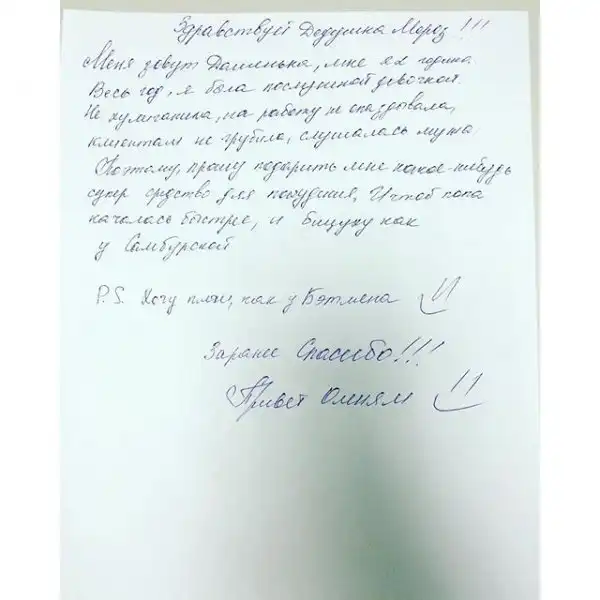 Здравствуй Дедушка Мороз !!!
Меня зовут Даминька, мне годика
Весь год, я была послушной девочкой.
Не хулиганила, на работу не опаздывала,
клиентам не грубила, слушалась мужа
Поэтому, прошу подарить мне какое-нибудь
супер средство для похудения, И чтоб попа
качалась быстрее, и бицуху как
у Самбурской
P.S. Хочу плащ, как у Бэтмена
Заранее Спасибо!!!
Привет Оленям